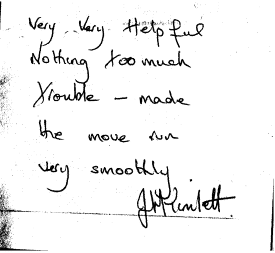 Very Very Helpful
Nothing too much
trouble – made
the move run
very smoothly.